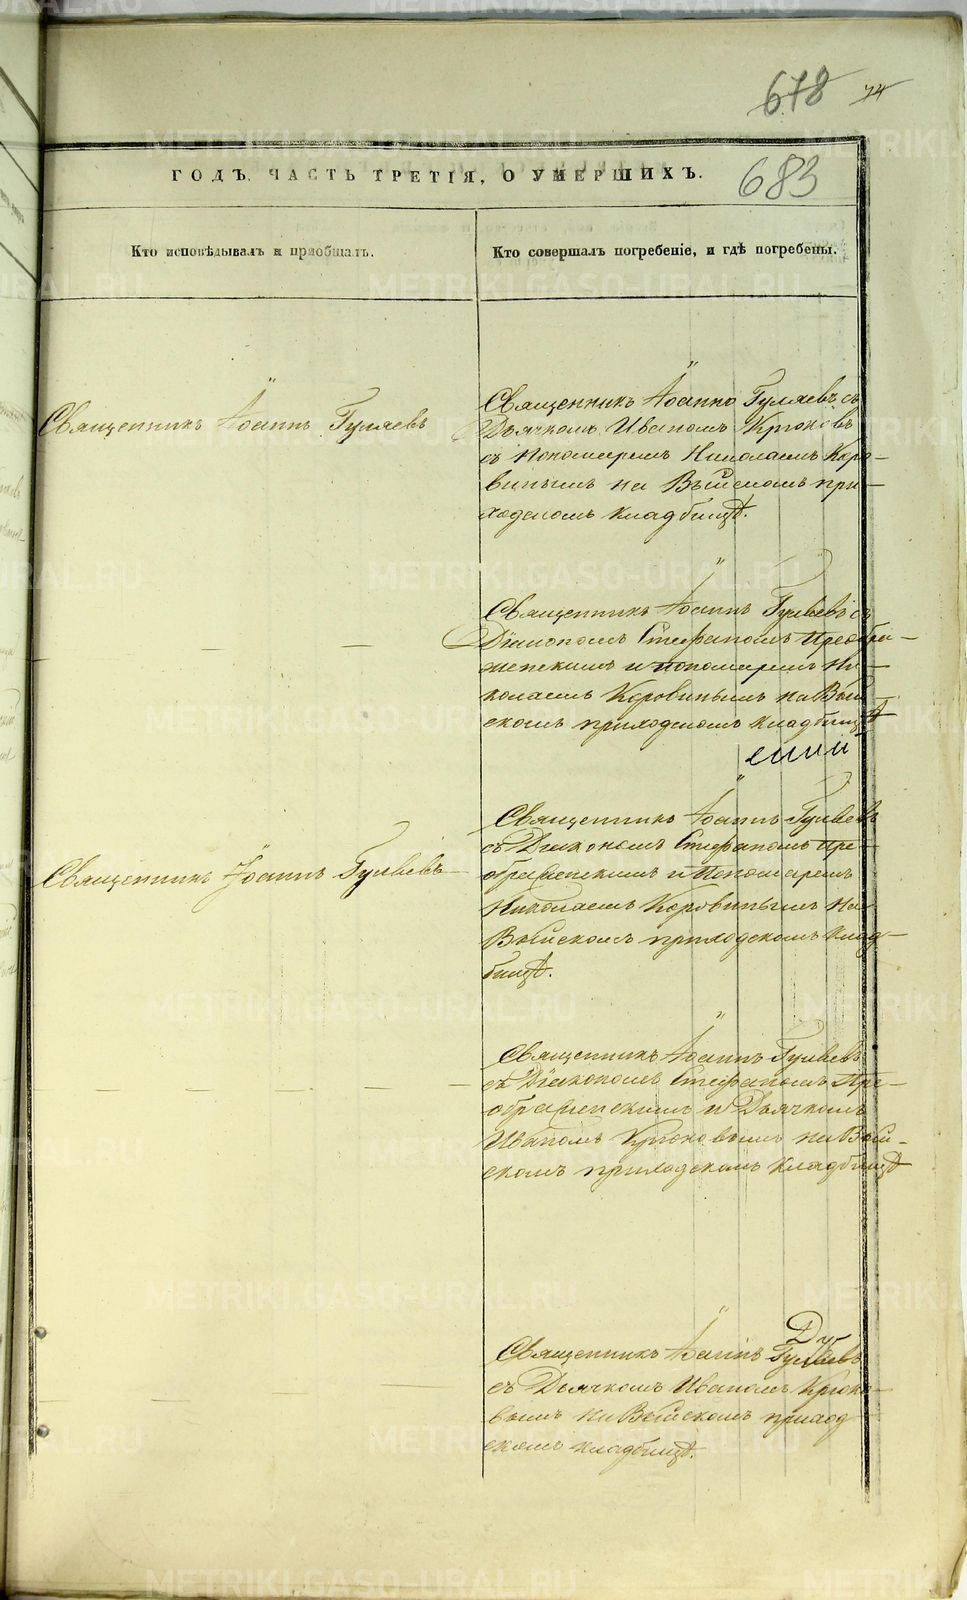 678 74
683
ГОДЪ, ЧАСТЬ ТРЕТІЯ, О УМЕРШИХЪ.
Кто исповѣдывалъ и пріобщалъ.
Кто совершалъ погребеніе, и гдѣ погребены.
Священникъ Іоаннъ Гуляевъ
Священникъ Іоаннъ Гуляевъ съ
Дьячкомъ Иваномъ Крюковъ
съ пономаремъ Николаемъ Коро-
винымъ на Выйскомъ при-
ходскомъ кладбищѣ.
Священникъ Іоаннъ Гуляевъ съ
Діакономъ Стефаномъ Преобра-
женскимъ и пономаремъ Ни-
колаемъ Коровинымъ на Вый-
скомъ приходскомъ кладбищѣ
Священникъ Іоаннъ Гуляевъ
Священникъ Іоаннъ Гуляевъ
съ Діакономъ Стефаномъ Пре-
ображенскимъ и Пономаремъ
Николаемъ Коровинымъ на
Выйскомъ приходскомъ клад-
бищѣ.
Священникъ Іоаннъ Гуляевъ
съ Діакономъ Стефаномъ Пре-
ображенскимъ и Дьячкомъ
Иваномъ Крюковымъ на Вый-
скомъ приходскомъ кладбищѣ
Священникъ Іоаннъ Гуляевъ
съ Дьячкомъ Иваномъ Крюко-
вымъ на Выйскомъ приход
скомъ кладбищѣ.
METRIKI.GASO-URAL.RU